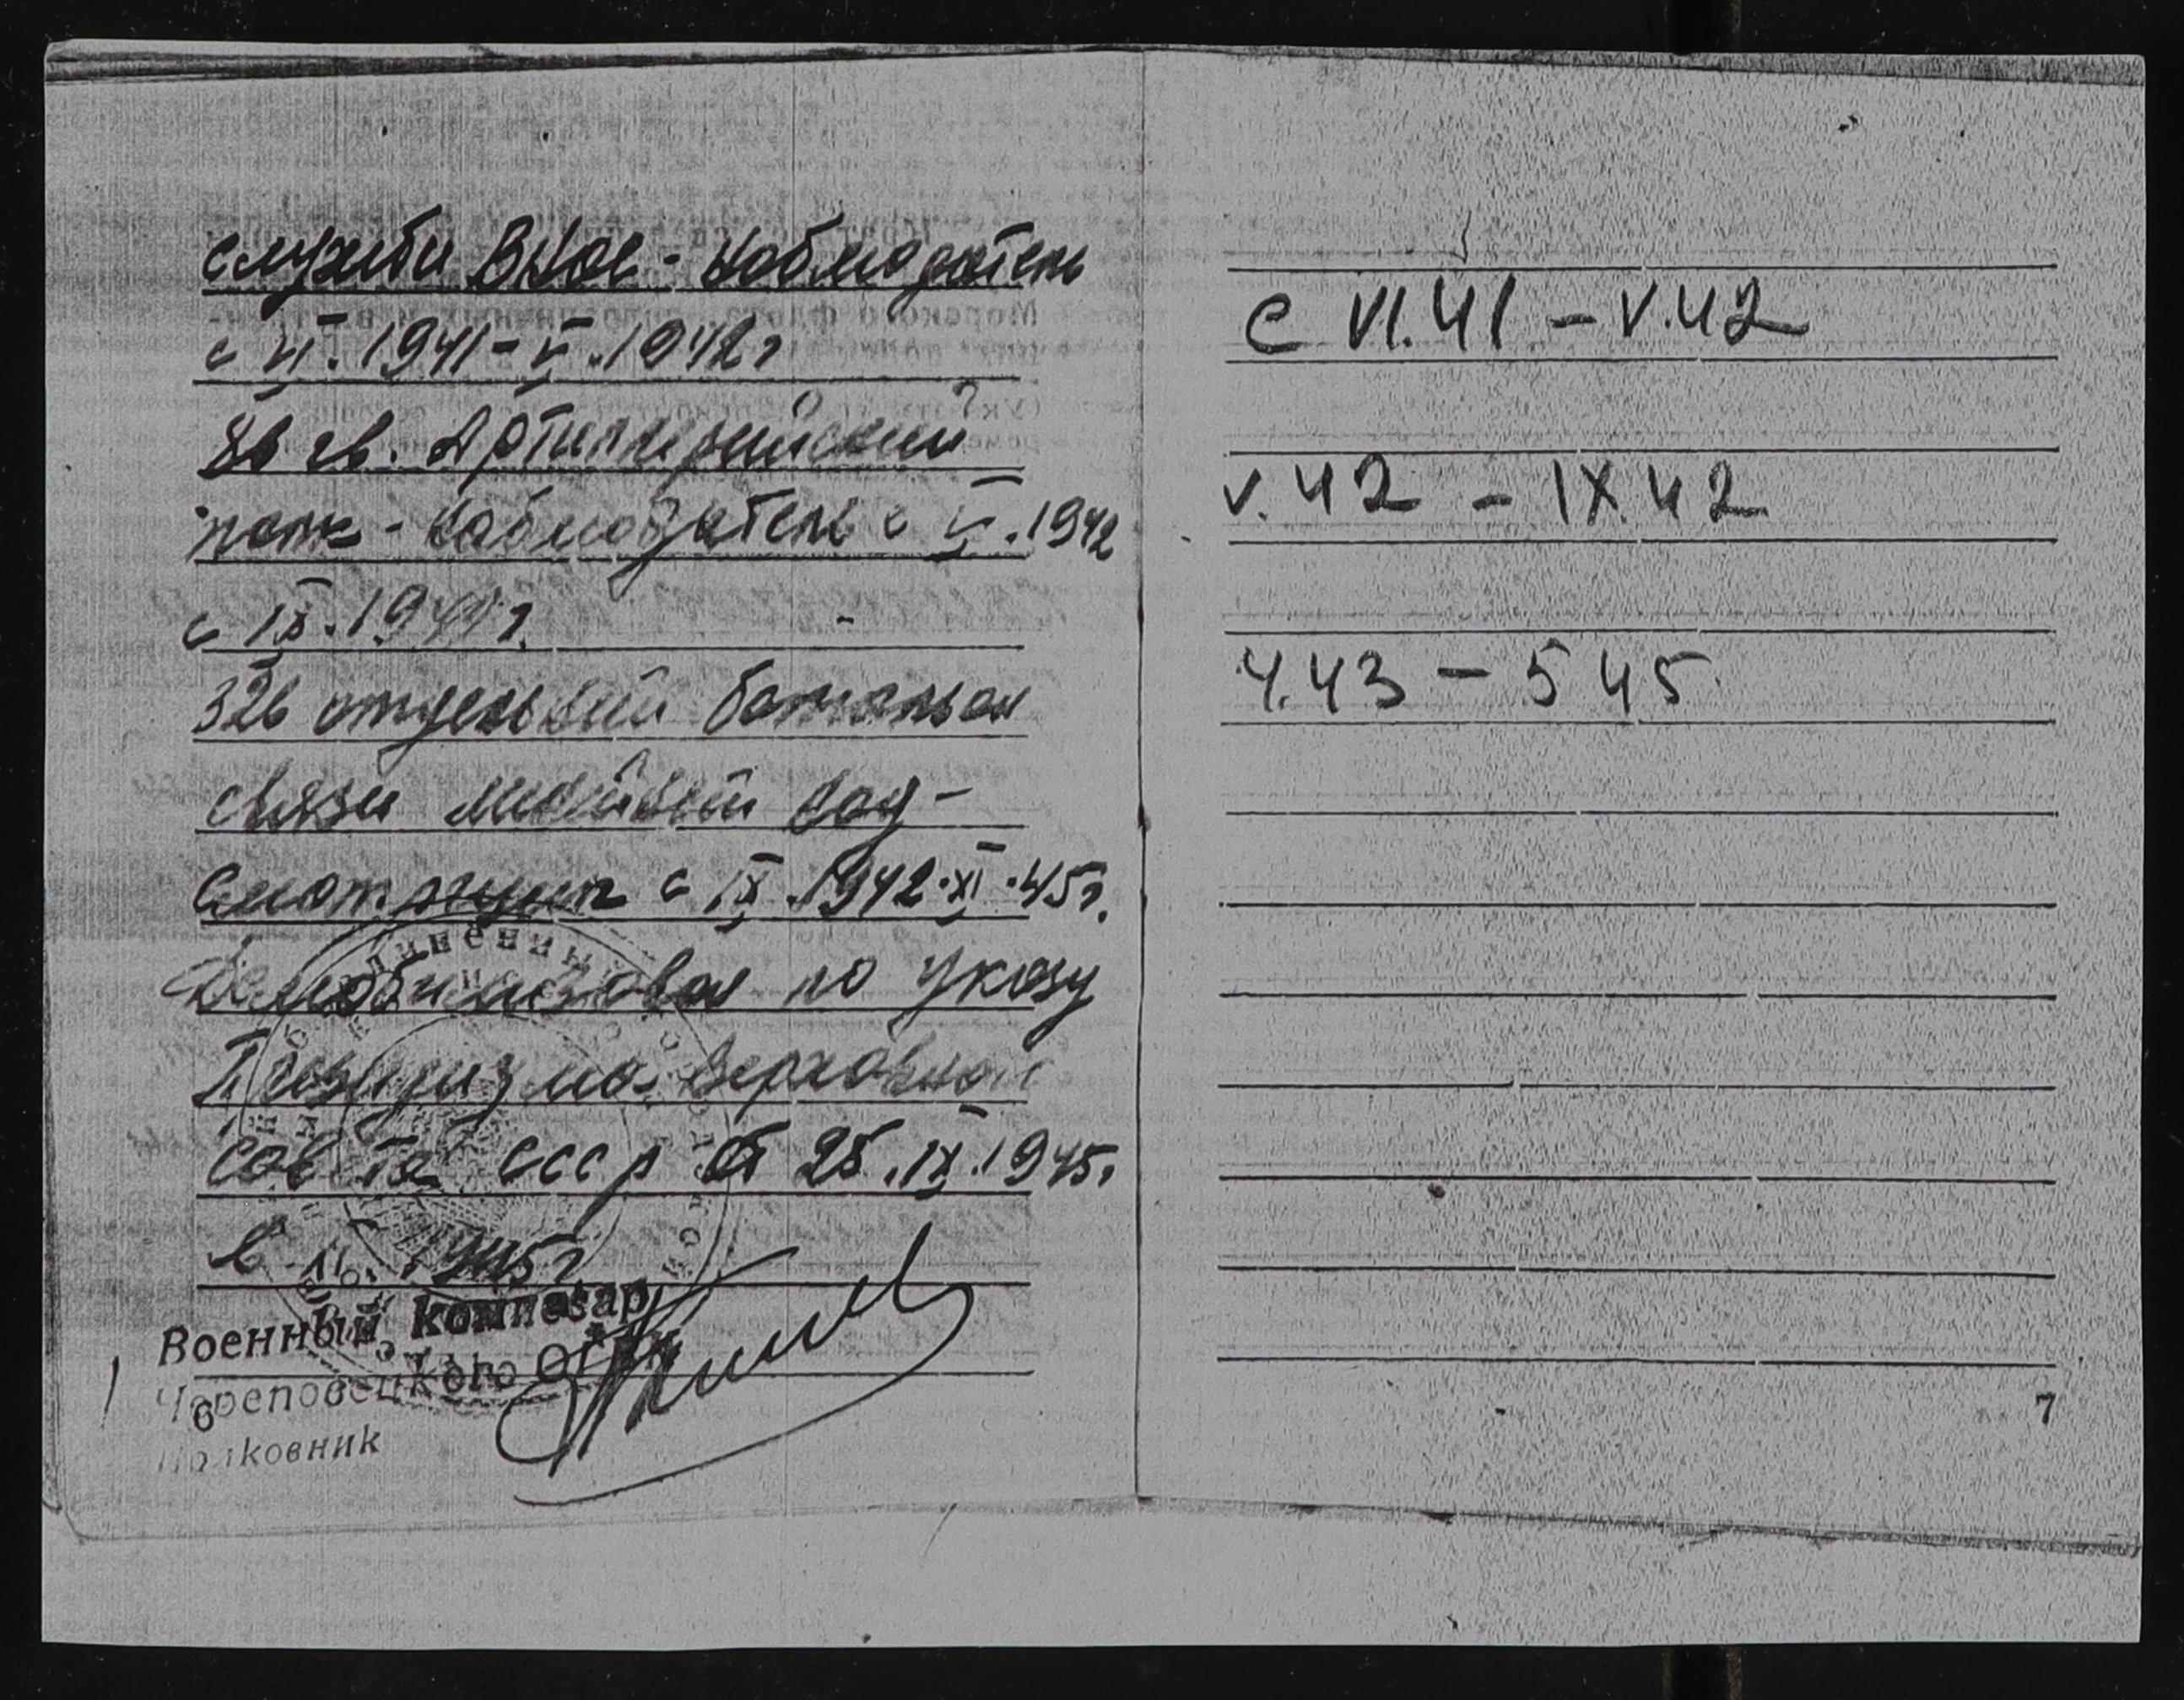 службы ВНОС - наблюдатель
с VI.1941 - V.1942г
86 гв. Артиллерийский
полк - наблюдатель с V.1942
с IX.194 г.
326 отдельный батальон
связи линейный над-
смотрщик с IX.1942.XI.45г.
Демобилизован по указу
Президиума Верховной
Совета СССР от 25.IX.1945г
в 11. 1945г
Военный комиссар
Череповецкого ОГВК
Полковник
6
с VI.41 - V.42
V.42 - IX.42
4.43 - 5 45
7